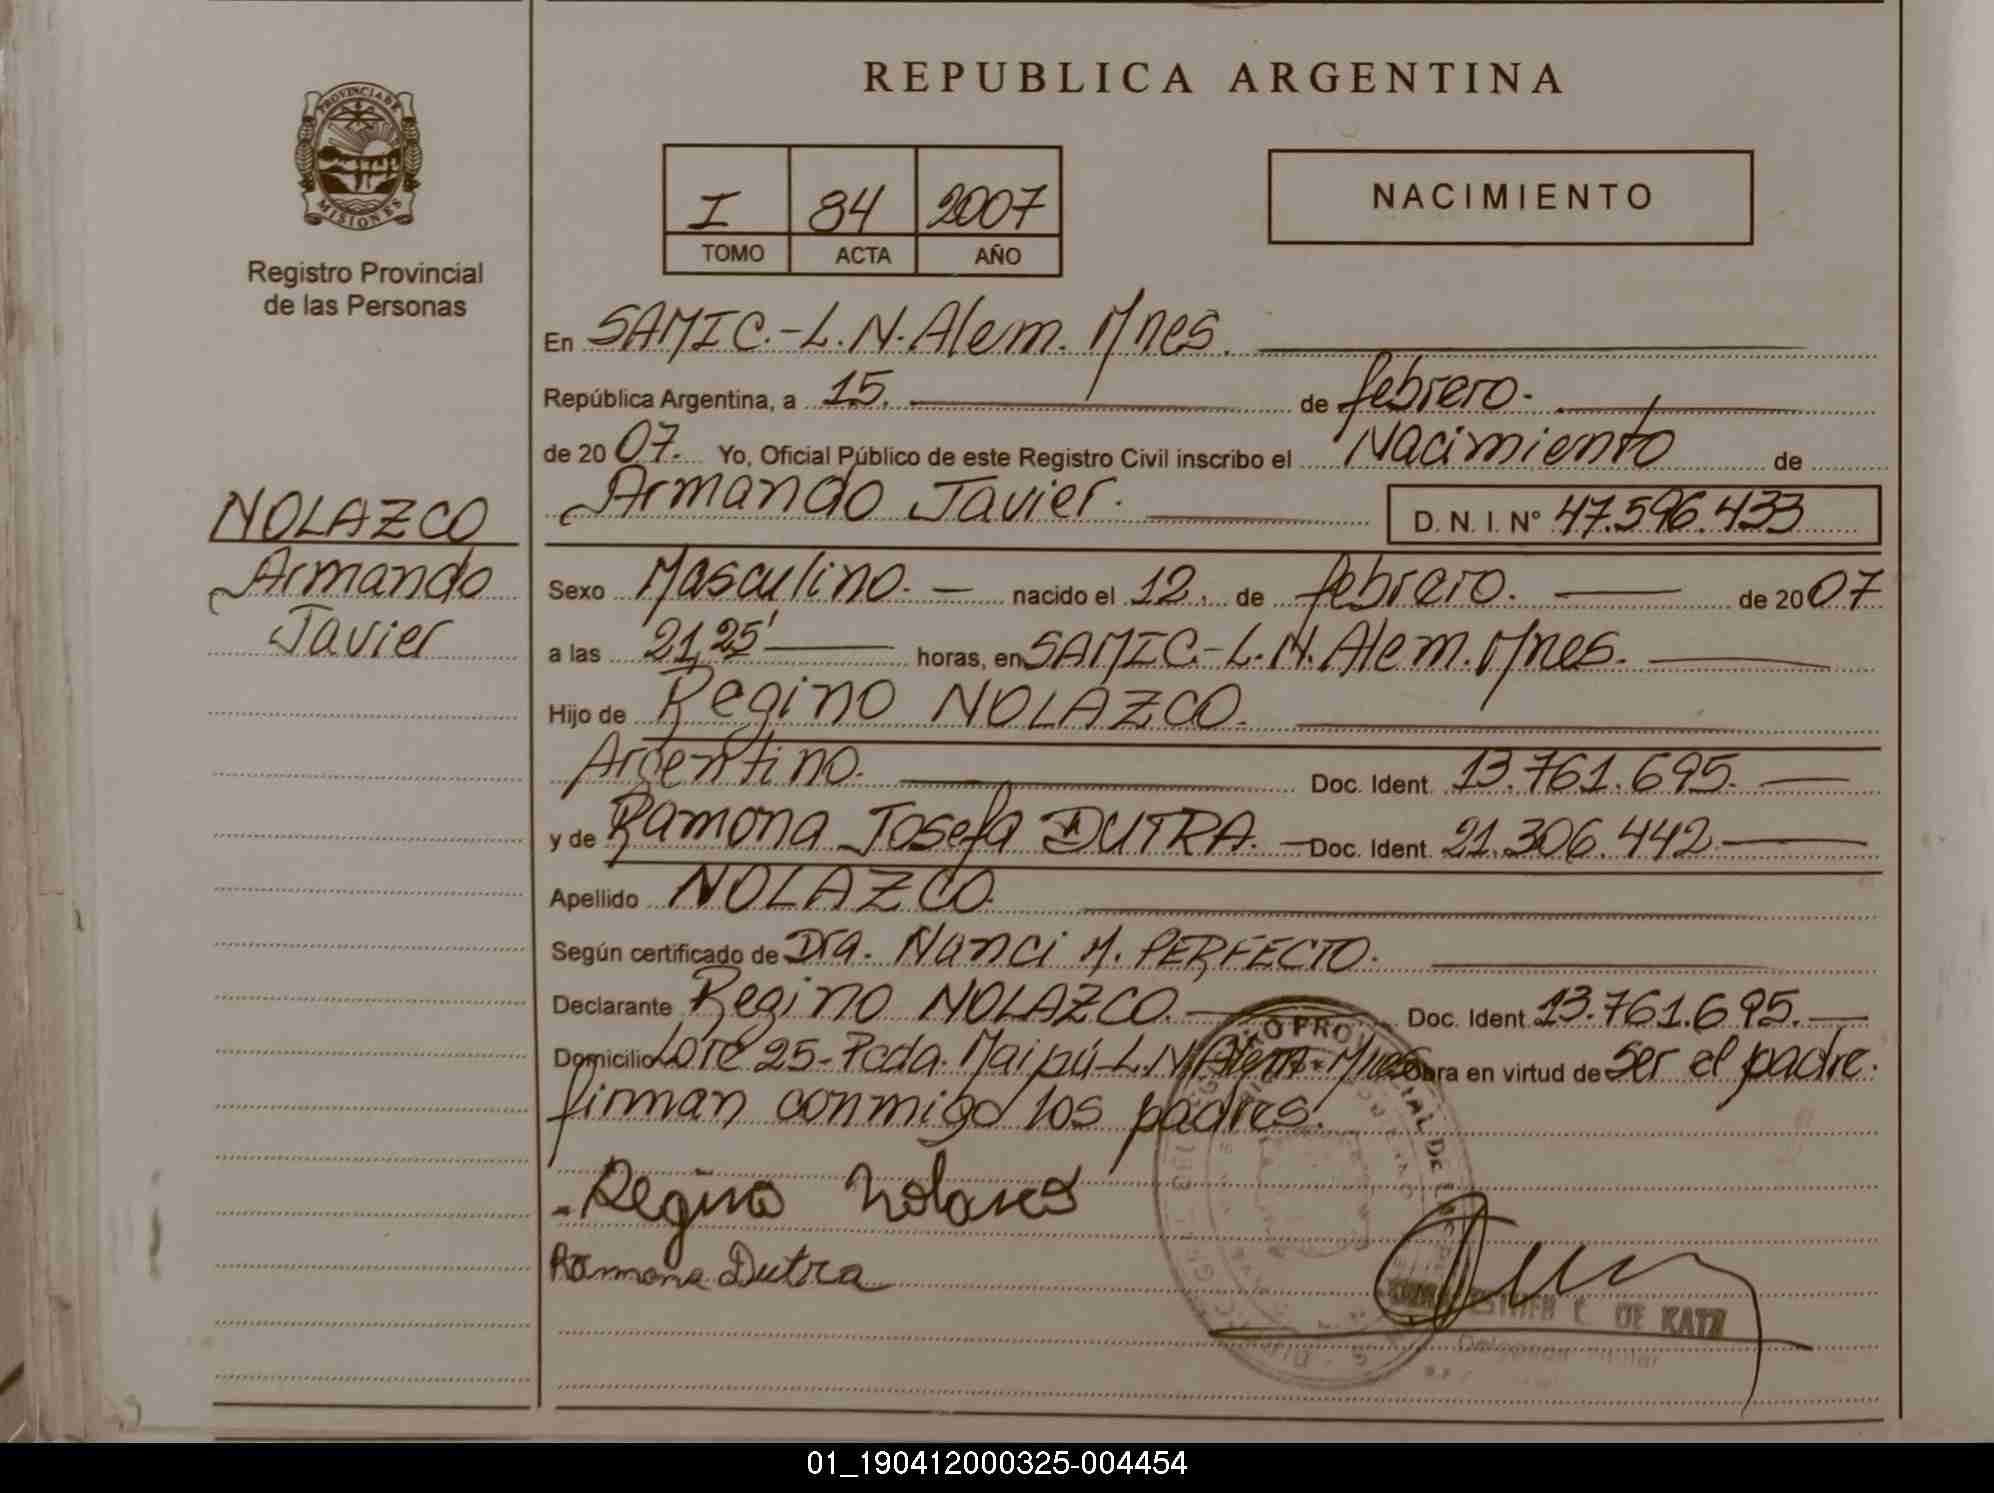 REPUBLICA ARGENTINA
PROVINCIA DE
MISIONES
Registro Provincial
de las Personas
I 84 2007
TOMO ACTA AÑO
NACIMIENTO
En SAMIC.-L.N.Alem. Mnes.
República Argentina, a 15. de febrero.
de 2007. Yo, Oficial Público de este Registro Civil inscribo el Nacimiento de
Armando Javier. D. N. I. Nº 47.596.433
NOLAZCO
Armando
Javier
Sexo Masculino. nacido el 12. de febrero. de 2007
a las 21,25' horas, en SAMIC.-L.N.Alem.Mnes.
Hijo de Regino NOLAZCO.
Argentino. Doc. Ident. 13.761.695.
y de Ramona Josefa DUTRA. Doc. Ident. 21.306.442
Apellido NOLAZCO.
Según certificado de Dra. Nanci M. PERFECTO.
Declarante Regino NOLAZCO. Doc. Ident. 13.761.695.
Domicilio Lote 25-Pcda. Maipú-L.N.Alem-Mnes Obra en virtud de ser el padre.
firman conmigo los padres.
Regino Nolasco
Ramona Dutra
DE KATZ
01_190412000325-004454